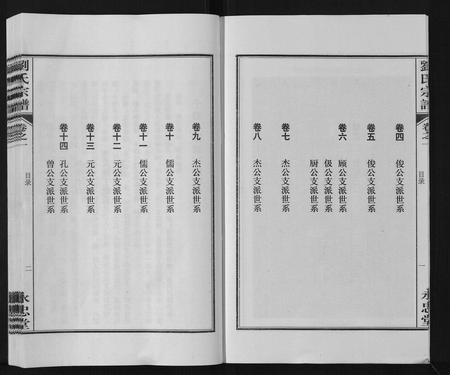 劉氏宗譜 卷之一 目录 一 永思堂
卷四 俊公支派世系
卷五 俊公支派世系
卷六 顾公支派世系
伋公支派世系
厨公支派世系
卷七 杰公支派世系
卷八 杰公支派世系
卷九 杰公支派世系
卷十 儒公支派世系
卷十一 儒公支派世系
卷十二 元公支派世系
卷十三 元公支派世系
卷十四 孔公支派世系
曾公支派世系
劉氏宗譜 卷之一 目录 二 永思堂